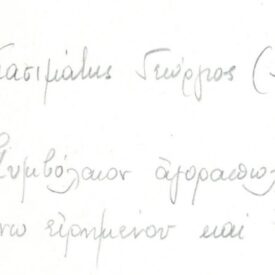 Κασιμάτης Γεώργιος (
Συμβόλαιον ἀγοραπωλ
νω εἰρημένου καὶ